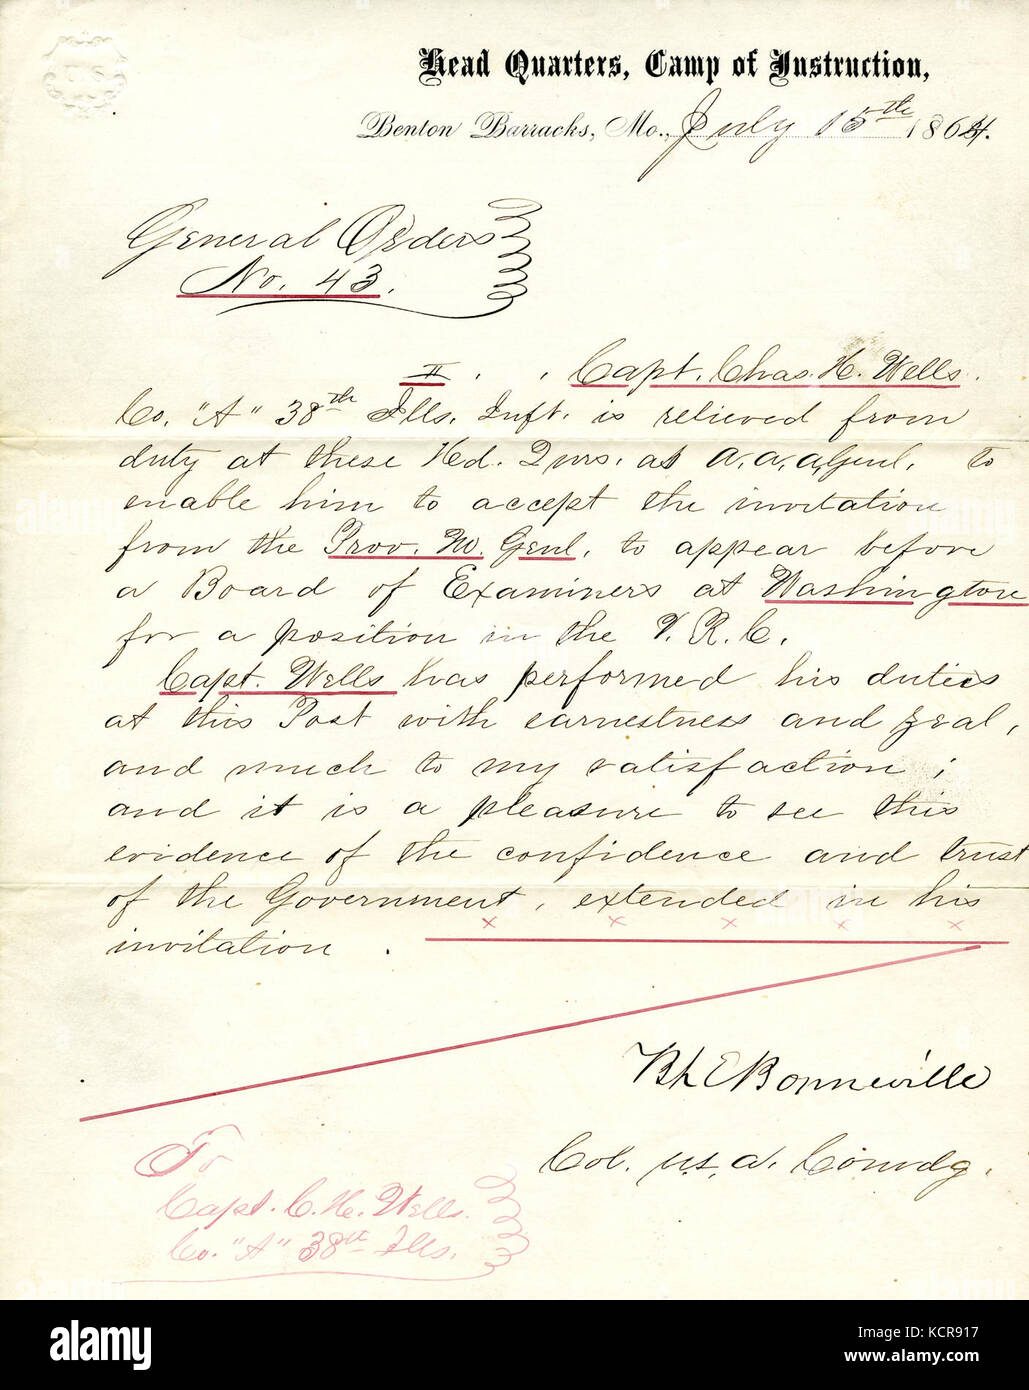 U.S.
Head Quarters, Camp of Instruction,
Benton Barracks, Mo., July 15th 1864.
General Orders
No. 43.
II. . Capt. Chas. H. Wells.
Co. "A" 38th Ills. Inft. is relieved from
duty at these Hd. Qurs. as A. A. A. Genl. to
enable him to accept the invitation
from the Prov. M. Genl. to appear before
a Board of Examiners at Washington
for a position in the V. R. C.
Capt. Wells has performed his duties
at this Post with earnestness and zeal,
and much to my satisfaction;
and it is a pleasure to see this
evidence of the confidence and trust
of the Government, extended in his
invitation . x x x x x
B L E Bonneville
Col. U.S.A. Comdg.
To
Capt. C. H. Wells.
Co. "A" 38th Ills.
alamy
Image ID: KCR917
www.alamy.com